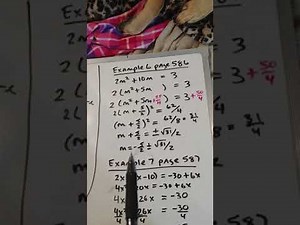 Example 6 page 586
2m² + 10m = 3
2(m² + 5m ) = 3
2(m² + 5m + 25/4) = 3 + 50/4
2(m + 5/2)² = 62/4
(m + 5/2)² = 62/8 = 31/4
m + 5/2 = ± √31/2
m = -5/2 ± √31/2
Example 7 page 587
-10) = -30 + 6x
4x² 20x = -30 + 6x
4x² 26x = -30